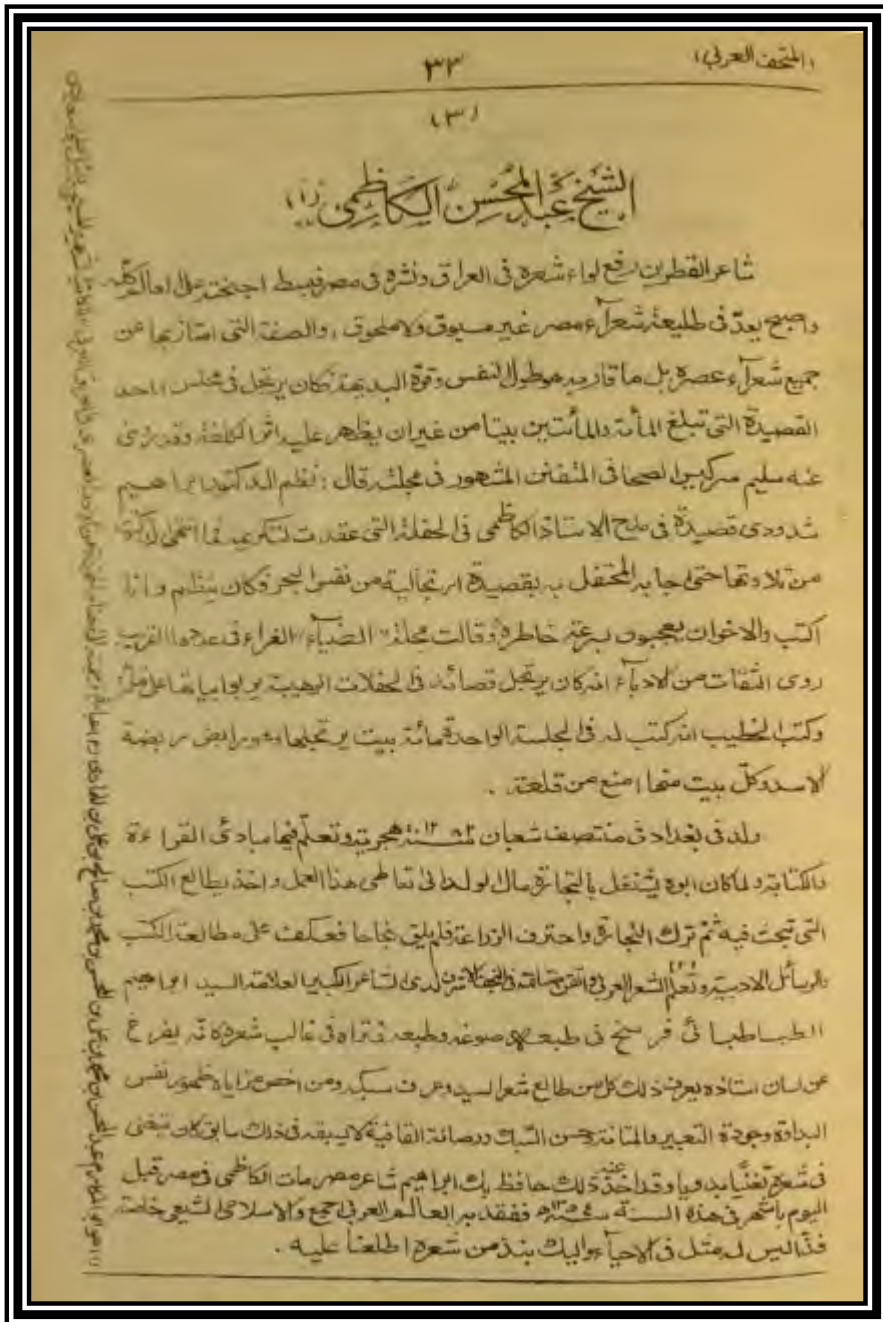 (المتحف العربي)
٣٣
(٣)
الشيخ عبد المحسن الكاظمي (١)
شاعر القطرين رفع لواء شعره في العراق ونشره في مصر فبسط اجنحته على العالم كله
واصبح يعدّ في طليعة شعرآء مصر غير مسبوق ولا ملحوق ، والصفة التي امتاز بها عن
جميع شعرآء عصره بل ما قاربه هو طول النفس وقوة البديهة فكان يرتجل في مجلس واحد
القصيدة التي تبلغ المأة والمأتين بيتا من غير ان يظهر عليه اثر الكلفة وقد روى
عنه سليم سركيس الصحافي المتفنن المشهور في مجلته قال : نظم الدكتور ابراهيم
شدودي قصيدة في مدح الاستاذ الكاظمي في الحفلة التي عقدت لتكريمه فما انتهى
من تلاوتها حتى اجابه المحتفل به بقصيدة ارتجالية من نفس البحر وكان ينظم وانا
اكتب والاخوان يعجبون بسرعة خاطره وقالت مجلة " الضيآء " الغراء في عددها
روى الثقات من الادبآء انه كان يرتجل قصائده في الحفلات الرهيبة يربو ابياتها على
وكتب الخطيب انه كتب له في الجلسة الواحدة مائة بيت يرتجلها وهو رابض ربضة
الاسد وكلّ بيت منها امنع من قلعة .
ولد في بغداد في منتصف شعبان سنة ١٢٨٢ هجرية وتعلّم فيها مبادئ القراءة
والكتابة ولما كان ابوه يشتغل بالتجارة مال الولد الى تعاطي هذا العمل واخذ يطالع الكتب
التي تبحث فيه ثمّ ترك التجارة واحترف الزراعة فلم يلق نجاحا فعكف على مطالعة الكتب
والرسائل الادبية وتعلّم الشعر العربي واتقن صناعته في النجف الاشرف لدى الشاعر الكبير العلامة السيد ابراهيم
الطباطبائي فرسخ في طبعه صوغه وطبعه فتراه في غالب شعره كانه يفرغ
عن لسان استاذه يعرف ذلك كل من طالع شعر السيد وعرف سبكه ومن اخص مزاياه ظهور نفس
البداوة وجودة التعبير والمتانة وحسن السّبك ورصانة القافية لا يسبقه في ذلك سابق كان يتغنى
في شعره تغنّيا بدويا وقد اخذ عنه ذلك حافظ بك ابراهيم شاعر مصر مات الكاظمي في مصر قبل
اليوم باشهر في هذه السنة ففقد به العالم العربي اجمع والاسلامي الشيعي خاصة
فذّا ليس له مثل في الاحيآء واليك بنذ من شعره اطلعنا عليه .